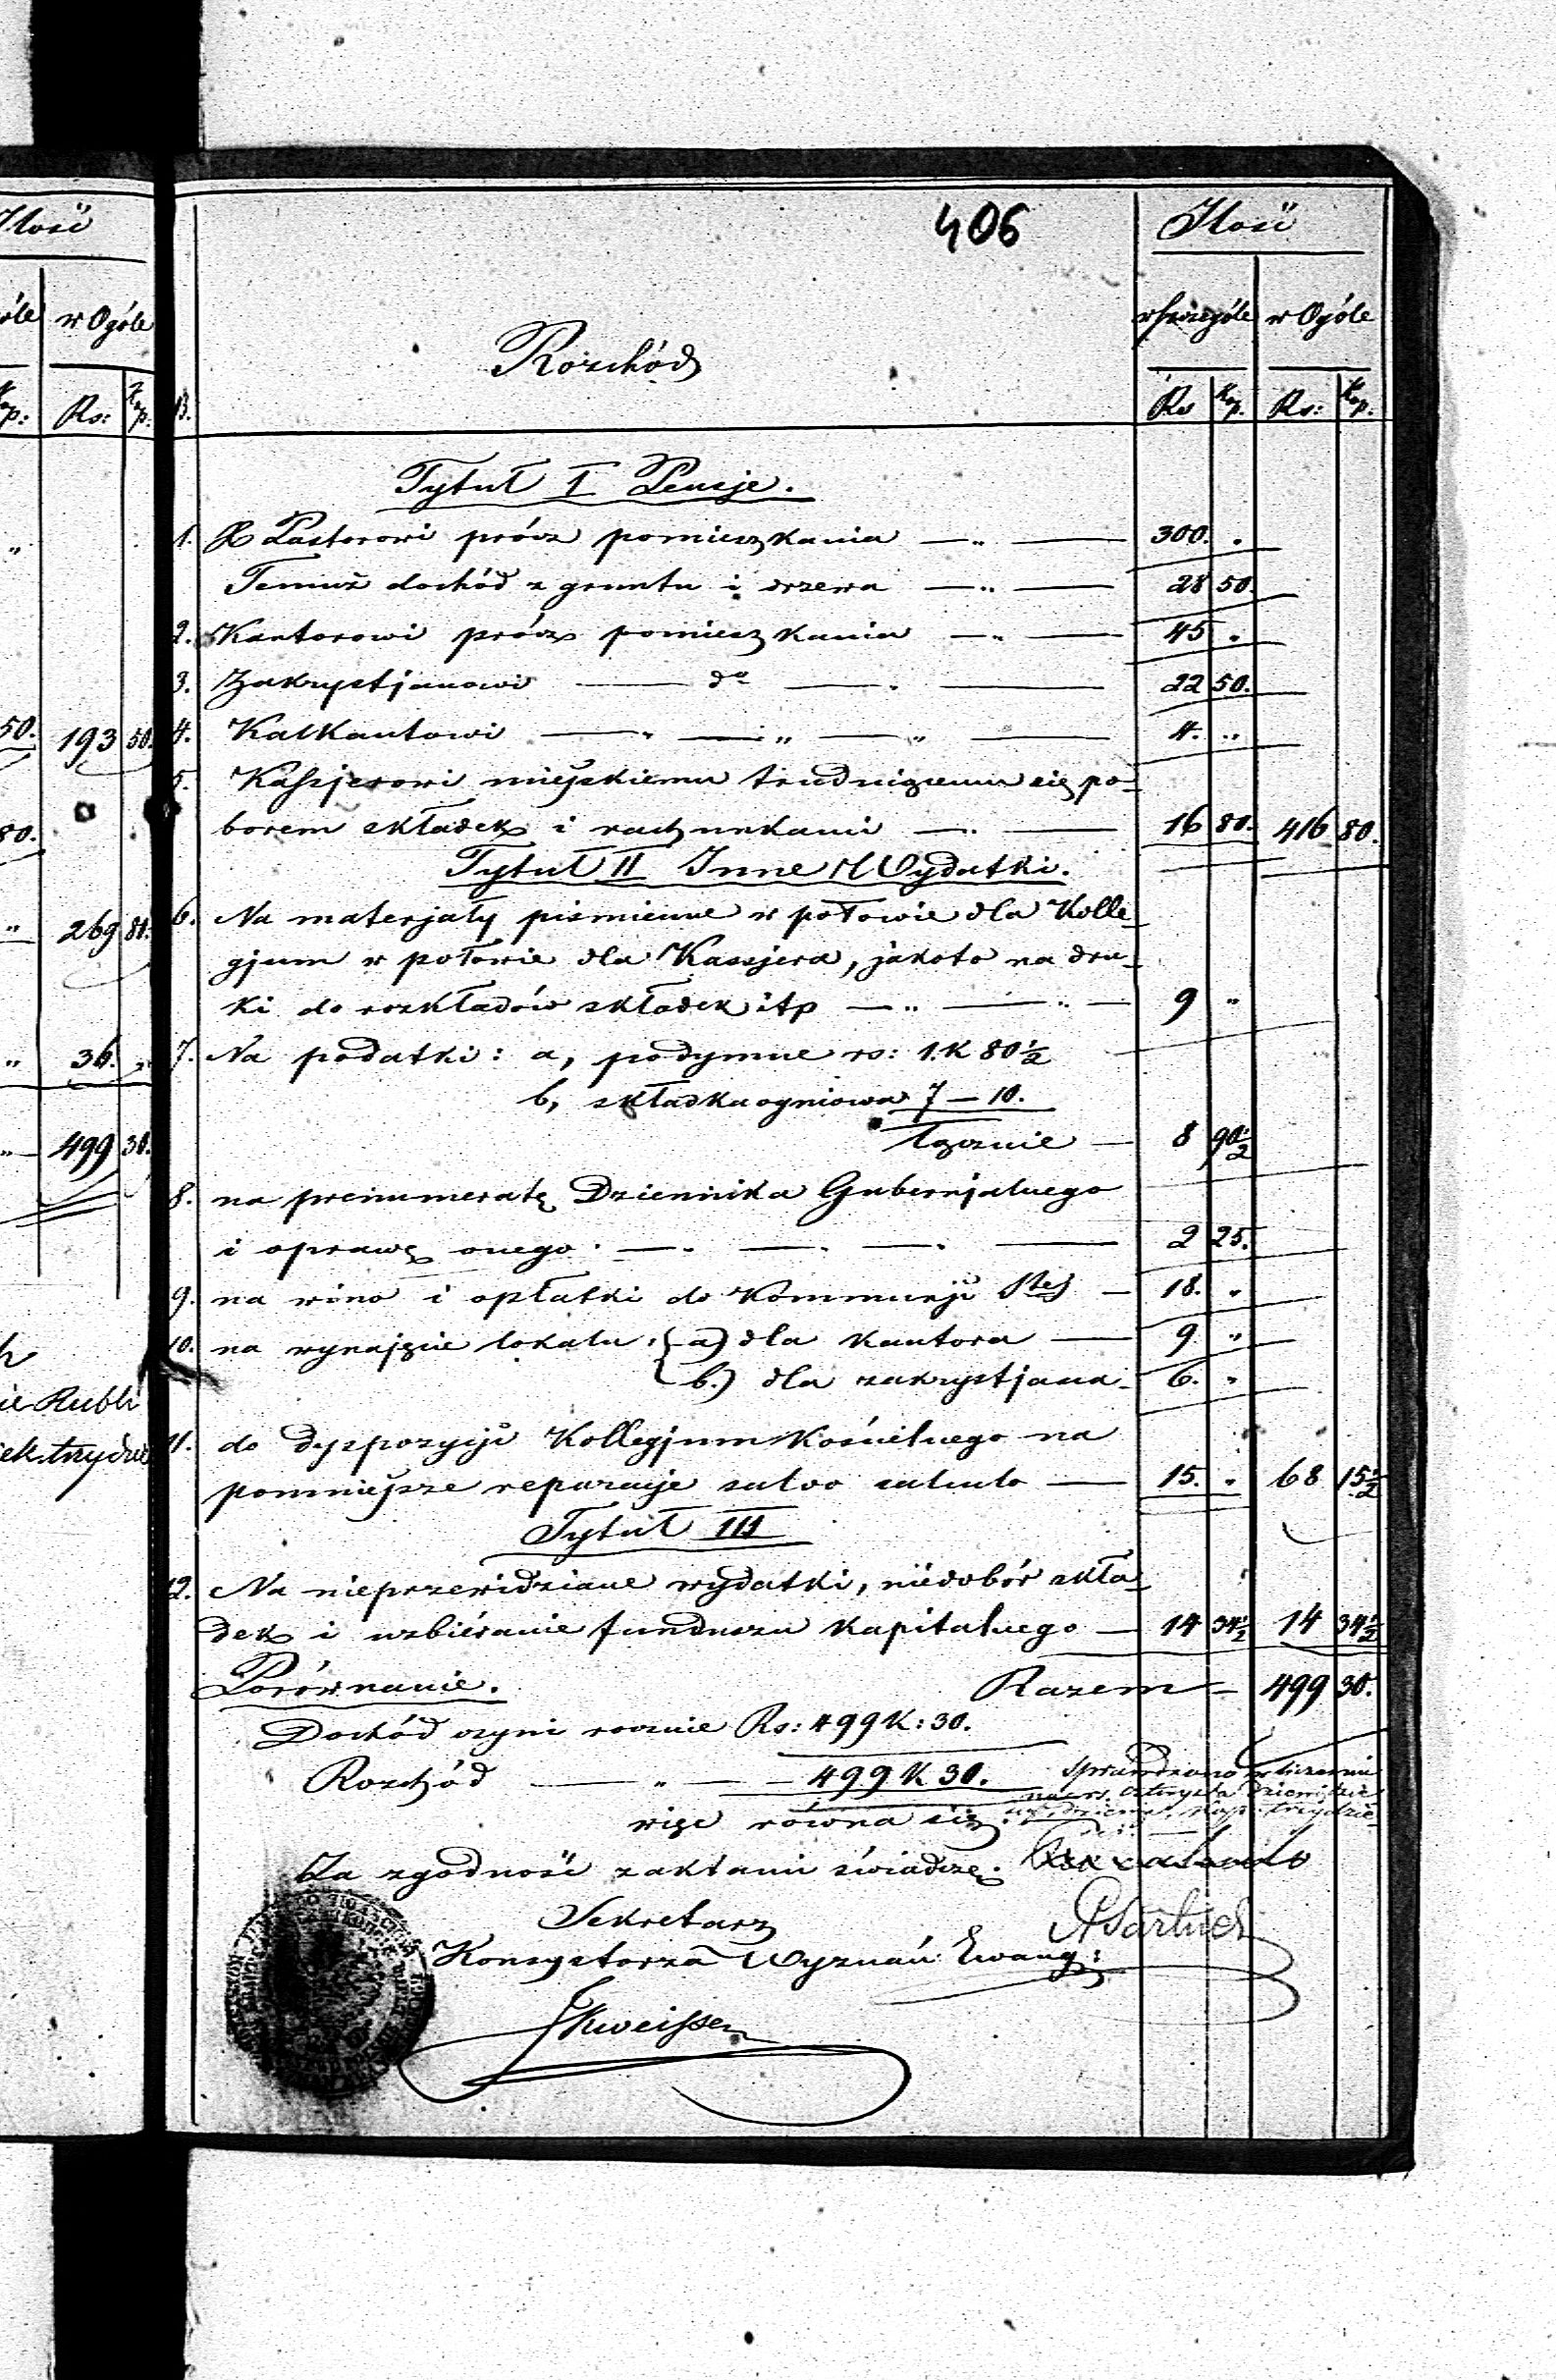 406
Ilość
w szczególe w Ogóle
Rozchód
Rs Kop. Rs: Kop.
Tytuł I Pensje.
1. X Pastorowi prócz pomieszkania —„— 300. „
Temuż dochód z gruntu i drzewa —„— 28 50.
2. Kantorowi prócz pomieszkania —„— 45 „
3. Zakrystjanowi — do — 22 50.
4. Kalkantowi —„—„—„— 4. „
5. Kassjerowi miejskiemu trudniącemu się po-
borem składek i rachunkami — 16 80. 416 80.
Tytuł II Inne Wydatki.
6. Na materjały piśmienne w połowie dla Kolle-
gjum w połowie dla Kassjera, jakoto na dru-
ki do rozkładów składek itp —„—„— 9 „
7. Na podatki: a, podymne rs: 1. K 80½
b, składka ogniowa 7 — 10.
łącznie — 8 90½
8. na prenumeratę Dziennika Gubernjalnego
i oprawę onego — 2 25.
9. na wino i opłatki do Kommunji Stej — 18. „
10. na wynajęcie lokalu: a) dla kantora — 9. „
b.) dla zakrystjana — 6. „
11. do dyspozycji Kollegjum Kościelnego na
pomniejsze reparacje salvo calculo — 15. „ 68 15½
Tytuł III
12. Na nieprzewidziane wydatki, niedobór skła-
dek i uzbiéranie funduszu kapitalnego — 14 34½ 14 34½
Porównanie. Razem — 499 30.
Dochód czyni rocznie Rs: 499 K: 30.
Rozchód —„— 499 K 30.
więc równa się.
Sprawdzono w liczeniu
na rs. czterysta dziewięćdzie
siąt dziewięć kop. trzydzie
Za zgodność z aktami świadczę.
Sekretarz
Konsystorza Wyznań Ewang:
Ilość
w Ogóle
Kop: Rs: Kop.
50. 193 50.
80.
„ 269 80.
„ 36. „
„ 499 30.
Rubli
trzydzie